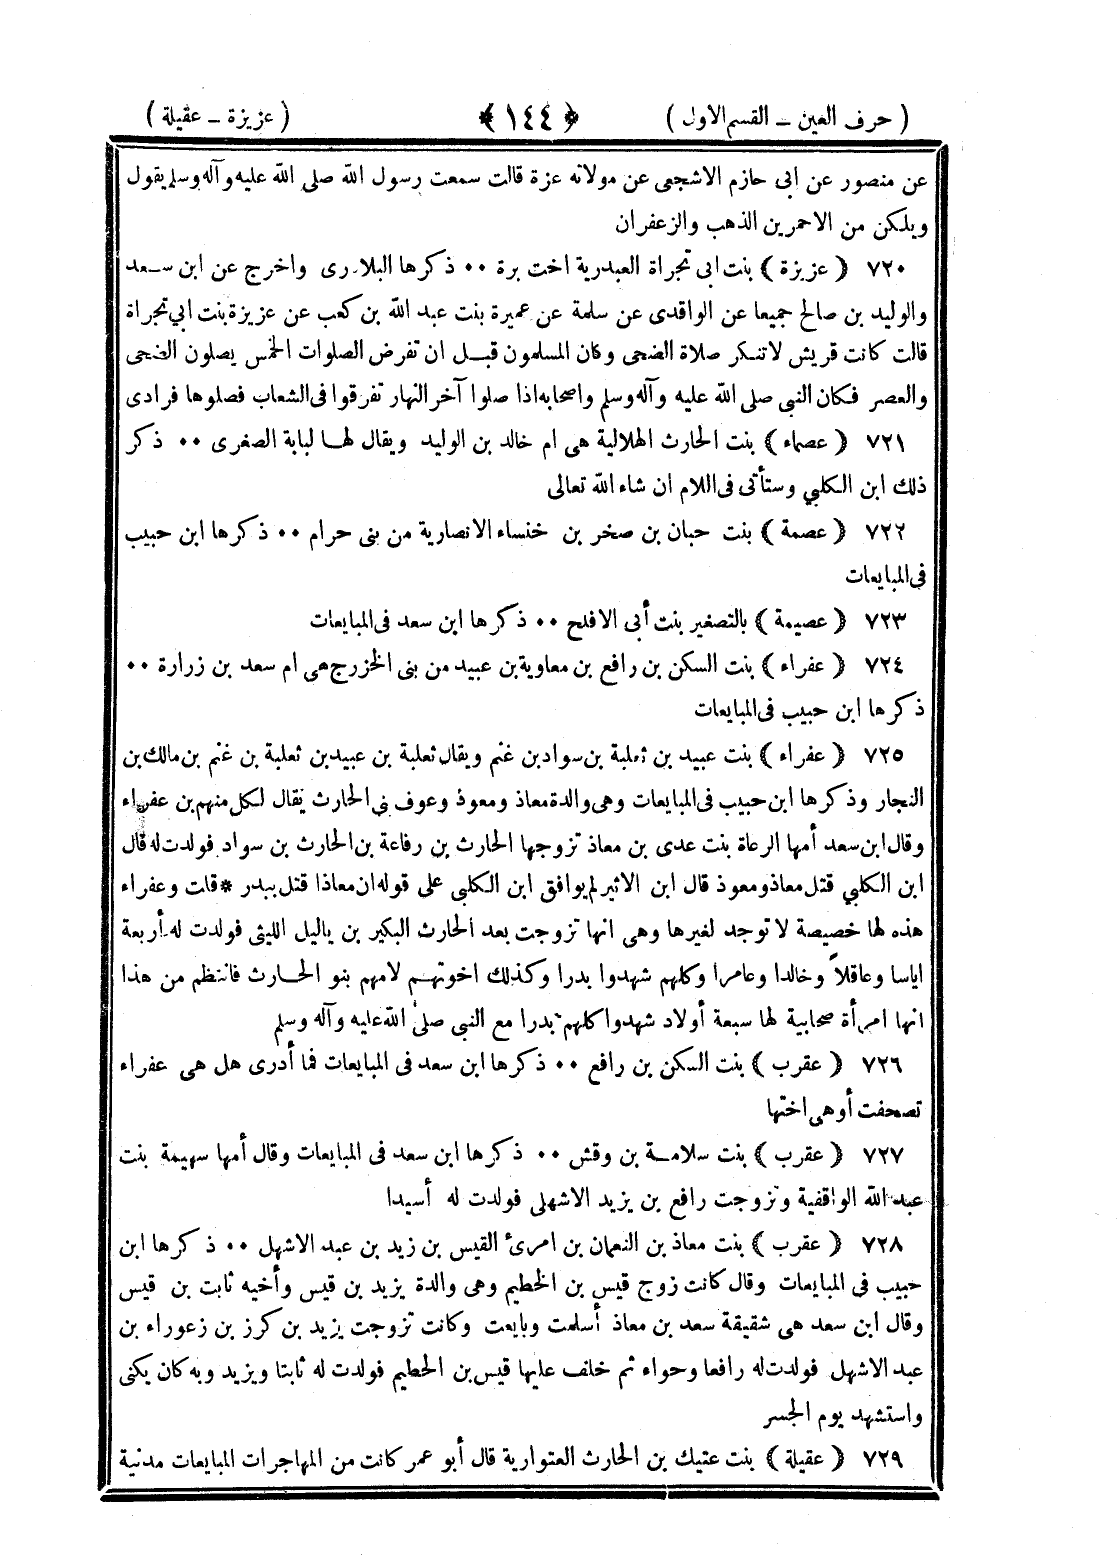 ( حرف العين – القسم الاول ) ﴿ ١٤٤ ﴾ ( عزيزة – عقيلة )
عن منصور عن ابى حازم الاشجعى عن مولاته عزة قالت سمعت رسول الله صلى الله عليه وآله وسلم يقول
ويلكن من الاحمرين الذهب والزعفران
٧٢٠ ﴿ عزيزة ﴾ بنت ابى تجراة العبدرية اخت برة ٠٠ ذكرها البلاذرى واخرج عن ابن سعد
والوليد بن صالح جميعا عن الواقدى عن سلمة عن عميرة بنت عبد الله بن كعب عن عزيزة بنت ابي تجراة
قالت كانت قريش لاتنكر صلاة الضحى وكان المسلمون قبل ان تفرض الصلوات الخمس يصلون الضحى
والعصر فكان النبى صلى الله عليه وآله وسلم واصحابه اذا صلوا آخر النهار تفرقوا فى الشعاب فصلوها فرادى
٧٢١ ﴿ عصماء ﴾ بنت الحارث الهلالية هى ام خالد بن الوليد ويقال لها لبابة الصغرى ٠٠ ذكر
ذلك ابن الكلبي وستأتى فى اللام ان شاء الله تعالى
٧٢٢ ﴿ عصمة ﴾ بنت حبان بن صخر بن خنساء الانصارية من بنى حرام ٠٠ ذكرها ابن حبيب
فى المبايعات
٧٢٣ ﴿ عصيمة ﴾ بالتصغير بنت أبى الافلح ٠٠ ذكرها ابن سعد فى المبايعات
٧٢٤ ﴿ عفراء ﴾ بنت السكن بن رافع بن معاوية بن عبيد من بنى الخزرج هى ام سعد بن زرارة ٠٠
ذكرها ابن حبيب فى المبايعات
٧٢٥ ﴿ عفراء ﴾ بنت عبيد بن ثعلبة بن سواد بن غنم ويقال ثعلبة بن عبيد بن ثعلبة بن غنم بن مالك بن
النجار وذكرها ابن حبيب فى المبايعات وهى والدة معاذ ومعوذ وعوف بني الحارث يقال لكل منهم بن عفراء
وقال ابن سعد أمها الرعاة بنت عدى بن معاذ تزوجها الحارث بن رفاعة بن الحارث بن سواد فولدت له قال
ابن الكلبي قتل معاذ ومعوذ قال ابن الاثير لم يوافق ابن الكلبى على قوله ان معاذا قتل ببدر * قلت وعفراء
هذه لها خصيصة لا توجد لغيرها وهى انها تزوجت بعد الحارث البكير بن ياليل الليثى فولدت له أربعة
اياسا وعاقلاً وخالدا وعامرا وكلهم شهدوا بدرا وكذلك اخوتهم لامهم بنو الحارث فانتظم من هذا
انها امرأة صحابية لها سبعة أولاد شهدوا كلهم بدرا مع النبي صلى الله عليه وآله وسلم
٧٢٦ ﴿ عقرب ﴾ بنت السكن بن رافع ٠٠ ذكرها ابن سعد فى المبايعات فما أدرى هل هى عفراء
تصحفت أوهى اختها
٧٢٧ ﴿ عقرب ﴾ بنت سلامة بن وقش ٠٠ ذكرها ابن سعد فى المبايعات وقال أمها سهيمة بنت
عبد الله الواقفية وتزوجت رافع بن يزيد الاشهلى فولدت له أسيدا
٧٢٨ ﴿ عقرب ﴾ بنت معاذ بن النعمان بن امرئ القيس بن زيد بن عبد الاشهل ٠٠ ذكرها ابن
حبيب فى المبايعات وقال كانت زوج قيس بن الخطيم وهى والدة يزيد بن قيس وأخيه ثابت بن قيس
وقال ابن سعد هى شقيقة سعد بن معاذ أسلمت وبايعت وكانت تزوجت يزيد بن كرز بن زعوراء بن
عبد الاشهل فولدت له رافعا وحواء ثم خلف عليها قيس بن الخطيم فولدت له ثابتا ويزيد وبه كان يكنى
واستشهد يوم الجسر
٧٢٩ ﴿ عقيلة ﴾ بنت عتيك بن الحارث العتوارية قال أبو عمر كانت من المهاجرات المبايعات مدنية